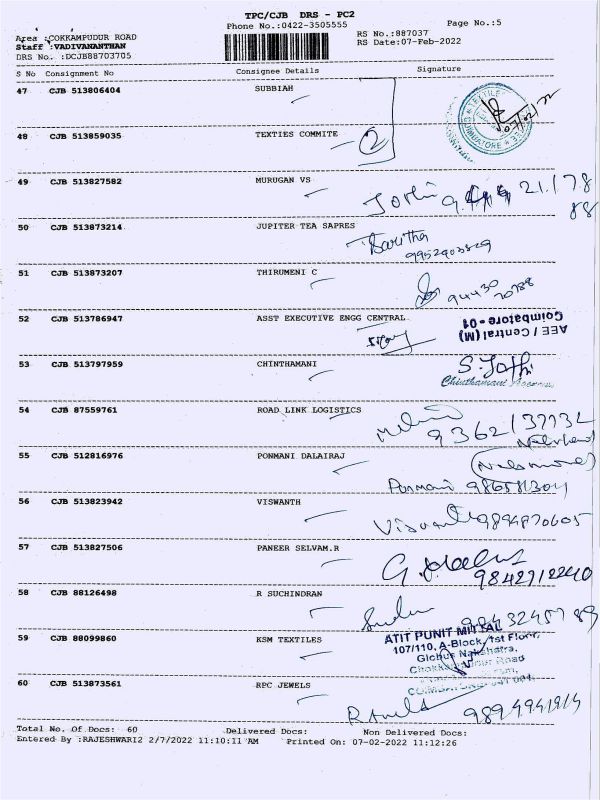 TPC/CJB DRS - PC2
Area :COKKAMPUDUR ROAD
Phone No.:0422-3505555
Page No.:5
Staff :VADIVANANTHAN
RS No.:887037
DRS No. :DCJB88703705
RS Date:07-Feb-2022
S No Consignment No Consignee Details Signature
47 CJB 513806404 SUBBIAH
48 CJB 513859035 TEXTIES COMMITE
2
49 CJB 513827582 MURUGAN VS
50 CJB 513873214 JUPITER TEA SAPRES
Saritha
51 CJB 513873207 THIRUMENI C
94430
52 CJB 513786947 ASST EXECUTIVE ENGG CENTRAL
AEE / Central (M)
Coimbatore - 01
53 CJB 513797959 CHINTHAMANI
54 CJB 87559761 ROAD LINK LOGISTICS
55 CJB 512816976 PONMANI DALAIRAJ
Ponmani
56 CJB 513823942 VISWANTH
9894870605
57 CJB 513827506 PANEER SELVAM.R
9842712240
58 CJB 88126498 R SUCHINDRAN
59 CJB 88099860 KSM TEXTILES
ATIT PUNIT MITTAL
107/110, A-Block, 1st Floor,
60 CJB 513873561 RPC JEWELS
Total No. Of Docs: 60 Delivered Docs: Non Delivered Docs:
Entered By :RAJESHWARI2 2/7/2022 11:10:11 AM Printed On: 07-02-2022 11:12:26